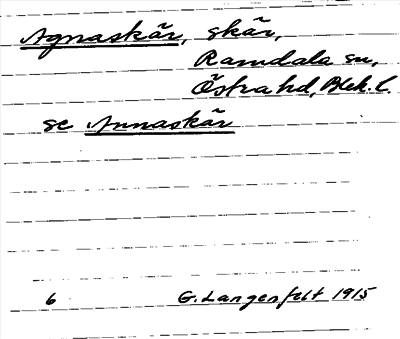 Agnaskär, skär,
Ramdala sn,
Östra hd, Blek. l.
se Annaskär
6 G. Langenfelt 1915